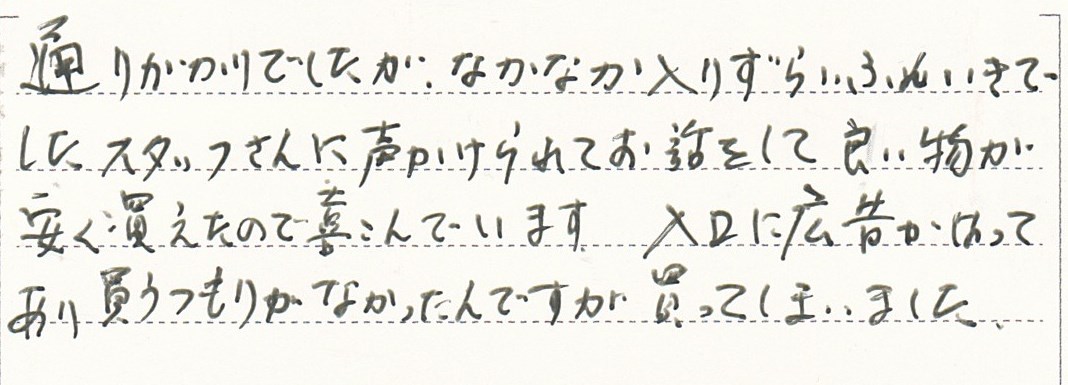 通りがかりでしたが、なかなか入りずらいふんいきで
したスタッフさんに声かけられてお話をして良い物が
安く買えたので喜こんでいます 入口に広告がはって
あり買うつもりがなかったんですが買ってしまいました、